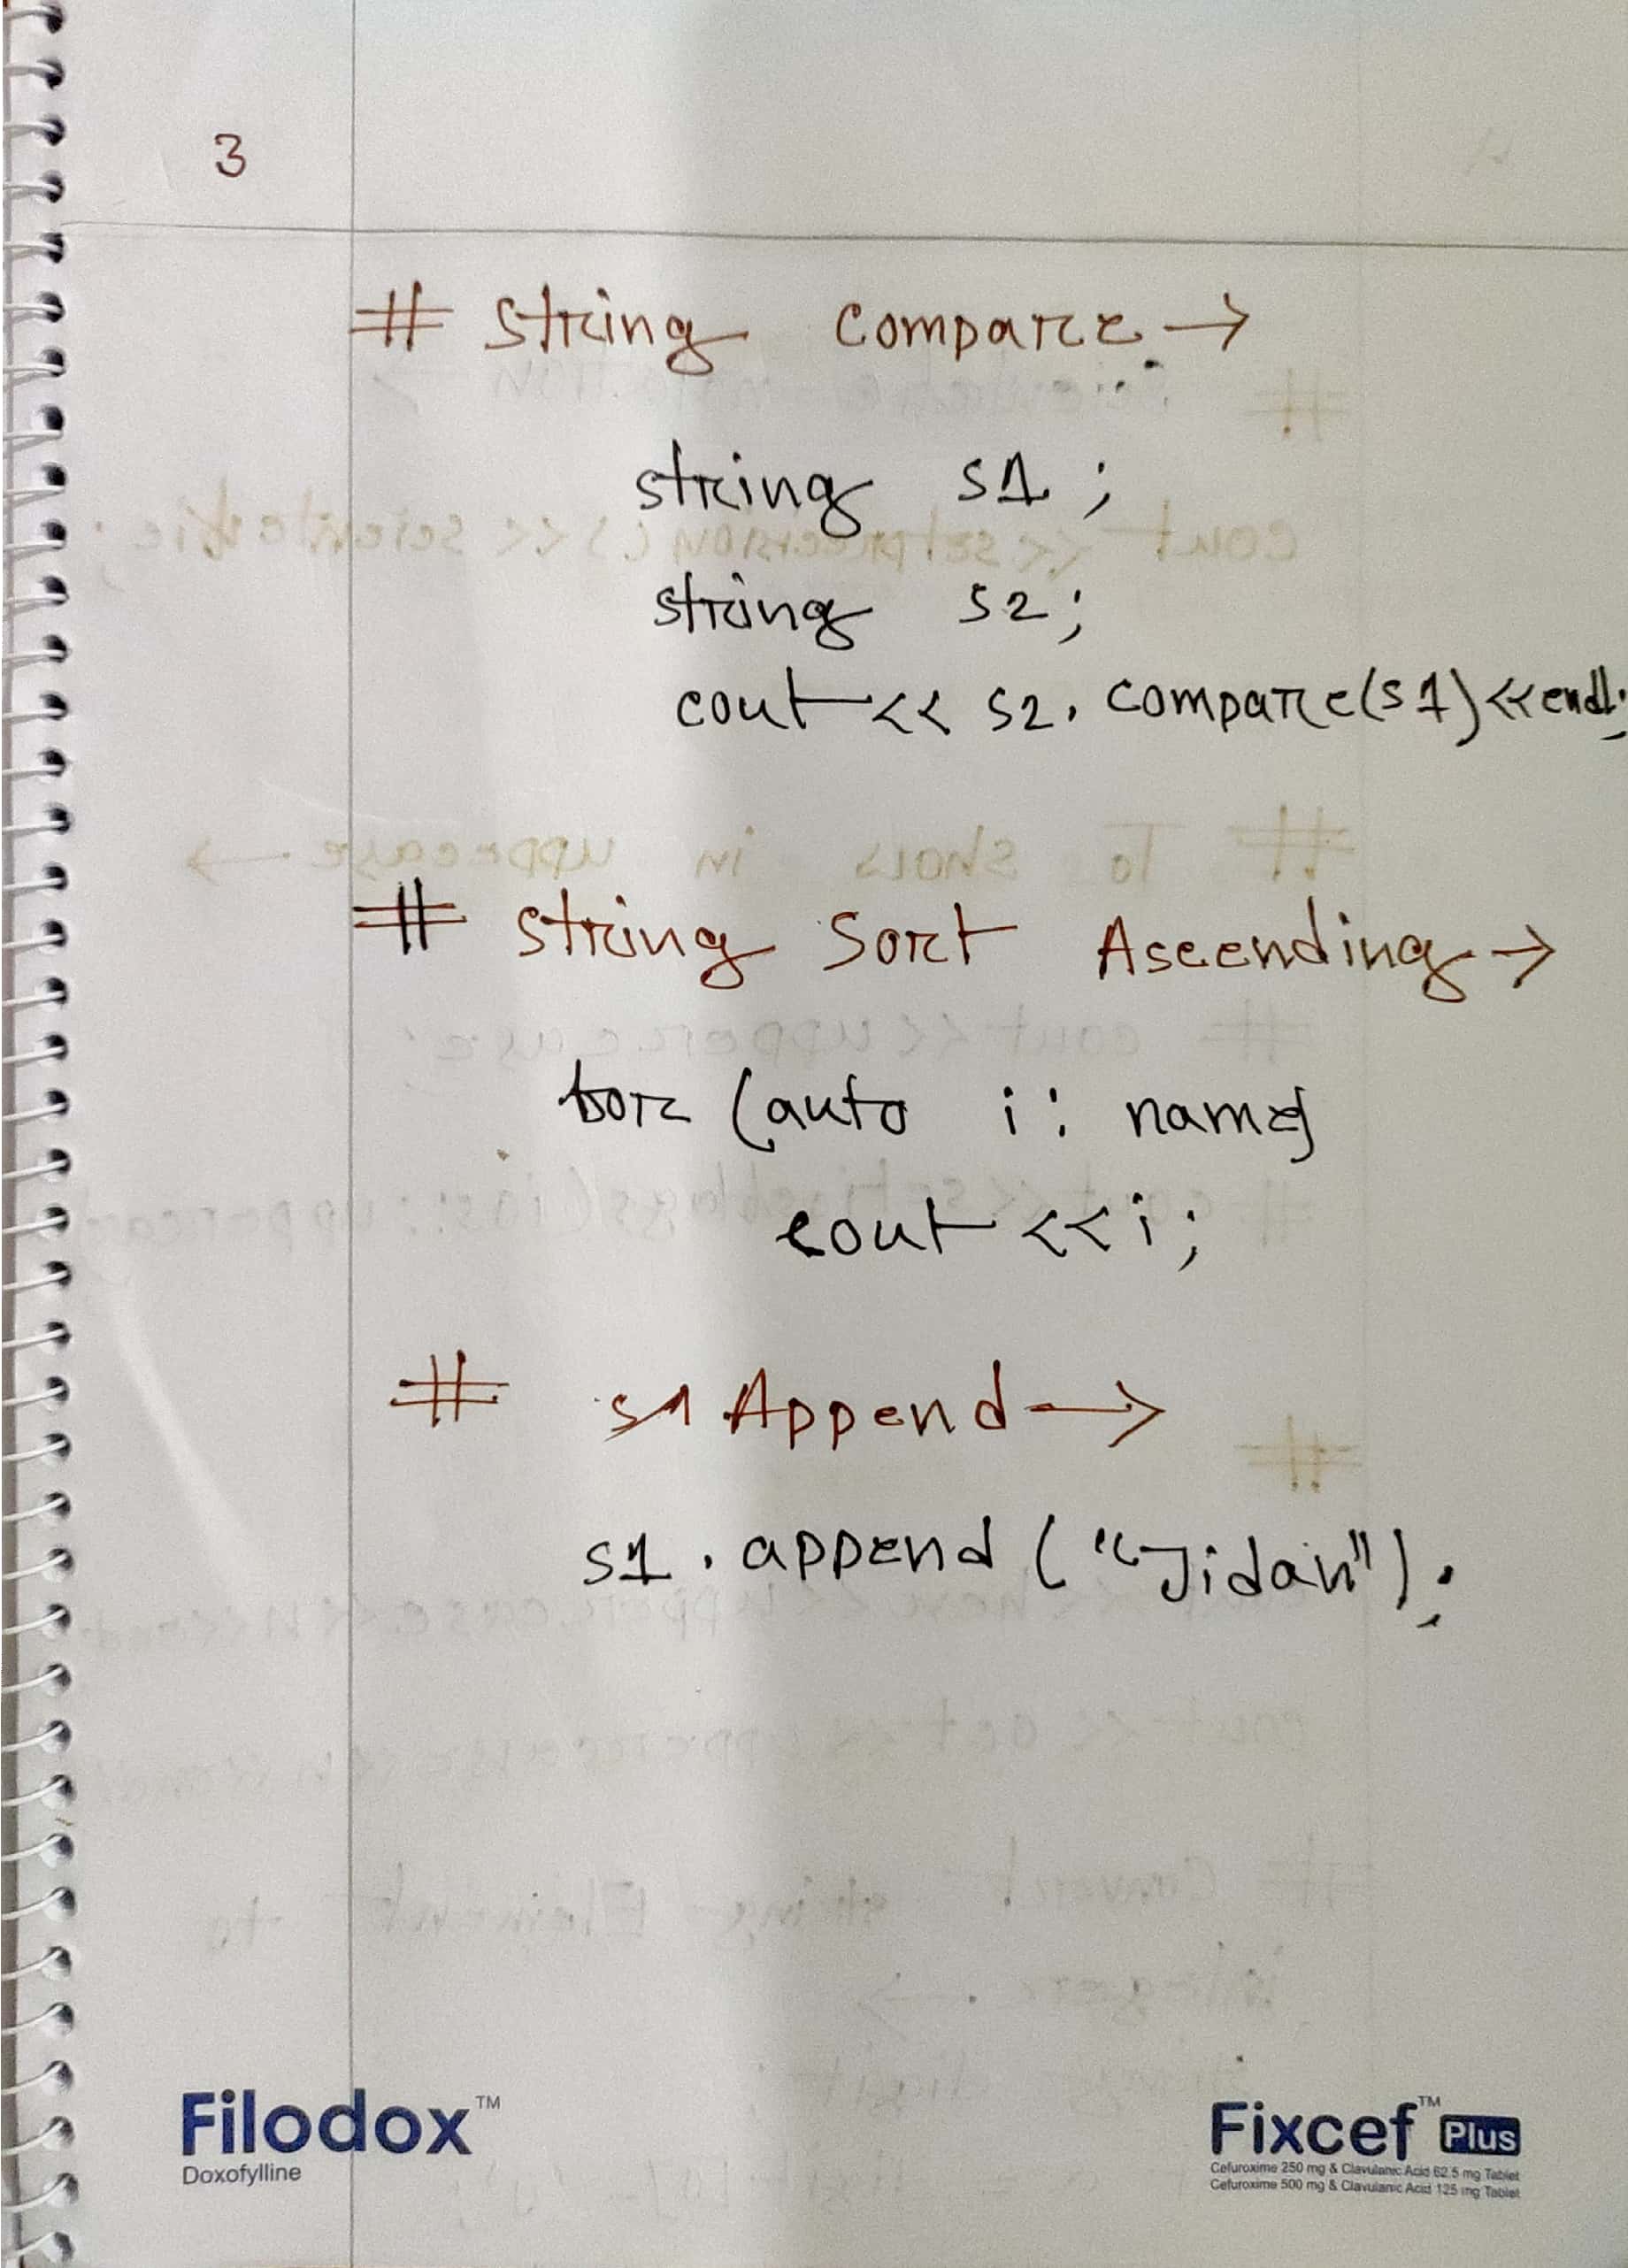 3
# String Compare →
string s1 ;
string s2;
cout << s2. compare(s1) << endl;
# String Sort Ascending →
for (auto i : name)
cout << i ;
# s1 Append →
s1 . append ("Jidan") ;
Filodox™
Doxofylline
Fixcef™ Plus
Cefuroxime 250 mg & Clavulanic Acid 62.5 mg Tablet
Cefuroxime 500 mg & Clavulanic Acid 125 mg Tablet